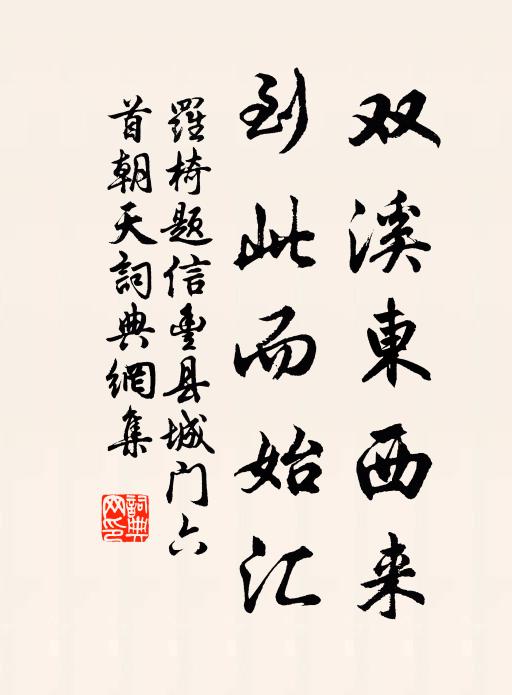 双溪東西来
到此而始汇
羅椅题信豊县城门六
首朝天詞典網集
詞典网印